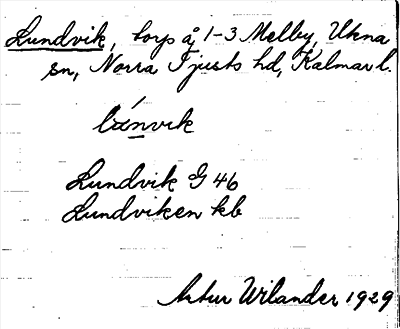 Lundvik, torp å 1-3 Melby, Ukna
sn, Norra Tjusts hd, Kalmar l.
lánvik
Lundvik G 46
Lundviken kb
Artur Wilander 1929